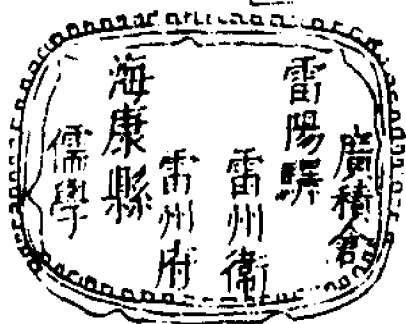 廣積倉
雷陽驛
雷州衛
雷州府
海康縣
儒學